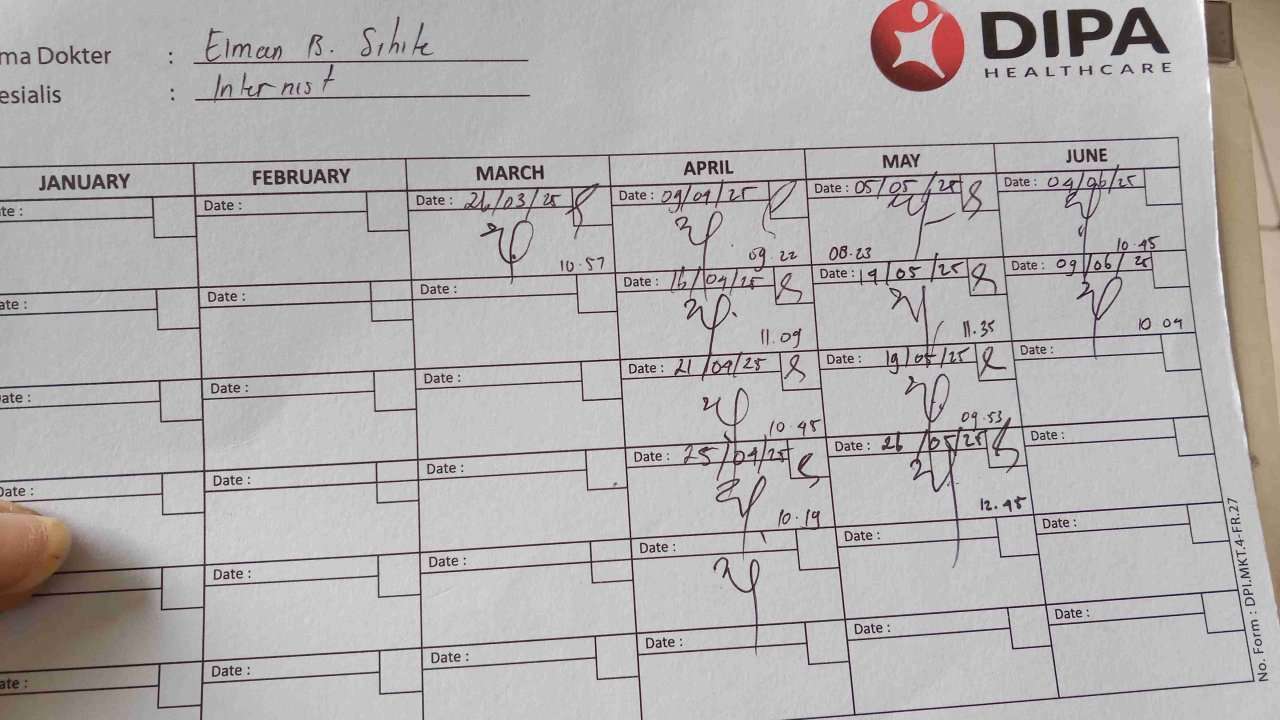 ma Dokter : Elman B. Sihite
esialis : Internist
DIPA
HEALTHCARE
JANUARY FEBRUARY MARCH APRIL MAY JUNE
te : Date : Date : 26/03/25 Date : 09/04/25 Date : 05/05/25 Date : 04/06/25
10.57 09.22 08.23 10.45
ate : Date : Date : Date : 16/04/25 Date : 14/05/25 Date : 09/06/25
11.09 11.35 10 04
ate : Date : Date : Date : 21/04/25 Date : 19/05/25 Date :
10.45 09.53
Date : Date : Date : Date : 25/04/25 Date : 26/05/25 Date :
10.19 12.45
Date : Date : Date : Date : Date :
ate : Date : Date : Date : Date : Date :
No. Form : DPI.MKT.4-FR.27